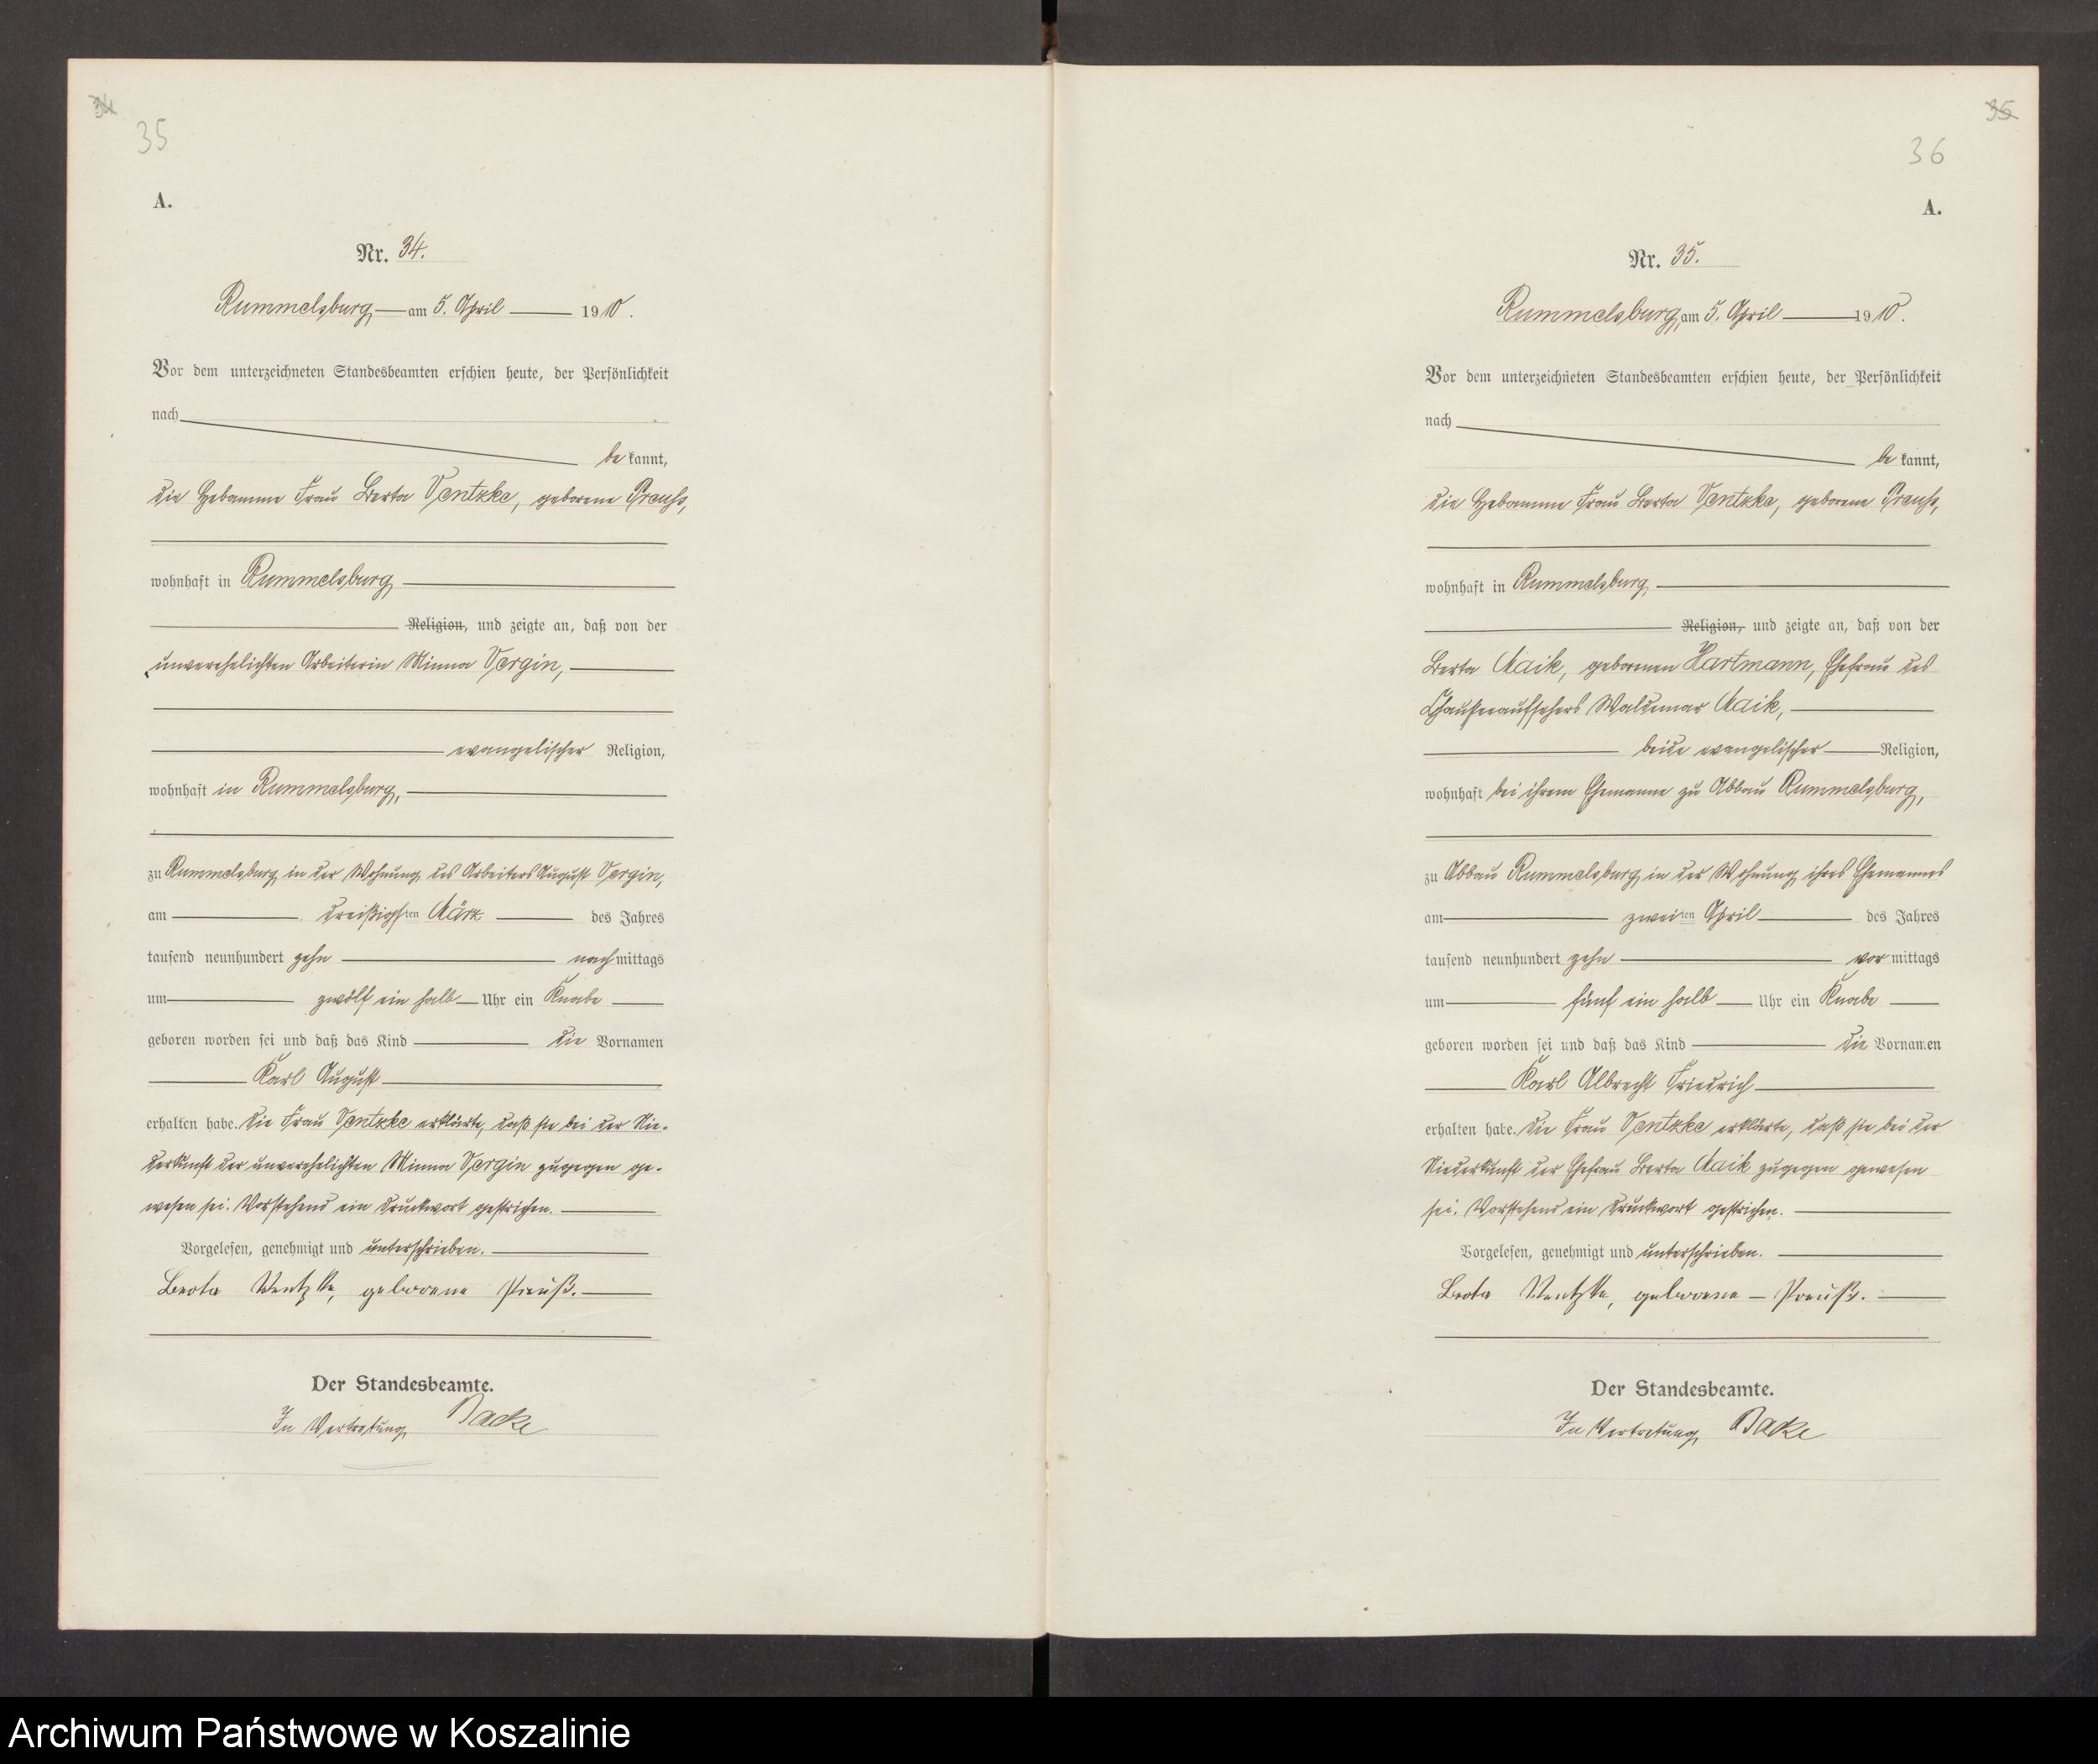 34
35
A.
Nr. 34.
Rummelsburg am 5. April 1910.
Vor dem unterzeichneten Standesbeamten erschien heute, der Persönlichkeit
nach
be kannt,
die Hebamme Frau Berta Ventzke, geborene Preuss,
wohnhaft in Rummelsburg
Religion, und zeigte an, daß von der
unverehelichten Arbeiterin Minna Vergin,
evangelischer Religion,
wohnhaft in Rummelsburg,
zu Rummelsburg in der Wohnung des Arbeiters August Vergin,
am dreißigsten März des Jahres
tausend neunhundert zehn nachmittags
um zwölf ein halb Uhr ein Knabe
geboren worden sei und daß das Kind die Vornamen
Karl August
erhalten habe. Die Frau Ventzke erklärte, daß sie bei der Nie-
derkunft der unverehelichten Minna Vergin zugegen ge-
wesen sei. Vorstehend ein Druckwort gestrichen.
Vorgelesen, genehmigt und unterschrieben.
Berta Ventzke, geborene Preuß.
Der Standesbeamte.
In Vertretung Backe
35
36
A.
Nr. 35.
Rummelsburg, am 5. April 1910.
Vor dem unterzeichneten Standesbeamten erschien heute, der Persönlichkeit
nach
be kannt,
die Hebamme Frau Berta Ventzke, geborene Preuss,
wohnhaft in Rummelsburg
Religion, und zeigte an, daß von der
Berta Maik, geborenen Hartmann, Ehefrau des
Chausseeaufsehers Waldemar Maik,
beide evangelischer Religion,
wohnhaft bei ihrem Ehemanne zu Abbau Rummelsburg,
zu Abbau Rummelsburg in der Wohnung ihres Ehemannes
am zweiten April des Jahres
tausend neunhundert zehn vor mittags
um fünf ein halb Uhr ein Knabe
geboren worden sei und daß das Kind die Vornamen
Karl Albrecht Friedrich
erhalten habe. Die Frau Ventzke erklärte, daß sie bei der
Niederkunft der Ehefrau Berta Maik zugegen gewesen
sei. Vorstehend ein Druckwort gestrichen.
Vorgelesen, genehmigt und unterschrieben.
Berta Ventzke, geborene Preuß.
Der Standesbeamte.
In Vertretung Backe
Archiwum Państwowe w Koszalinie